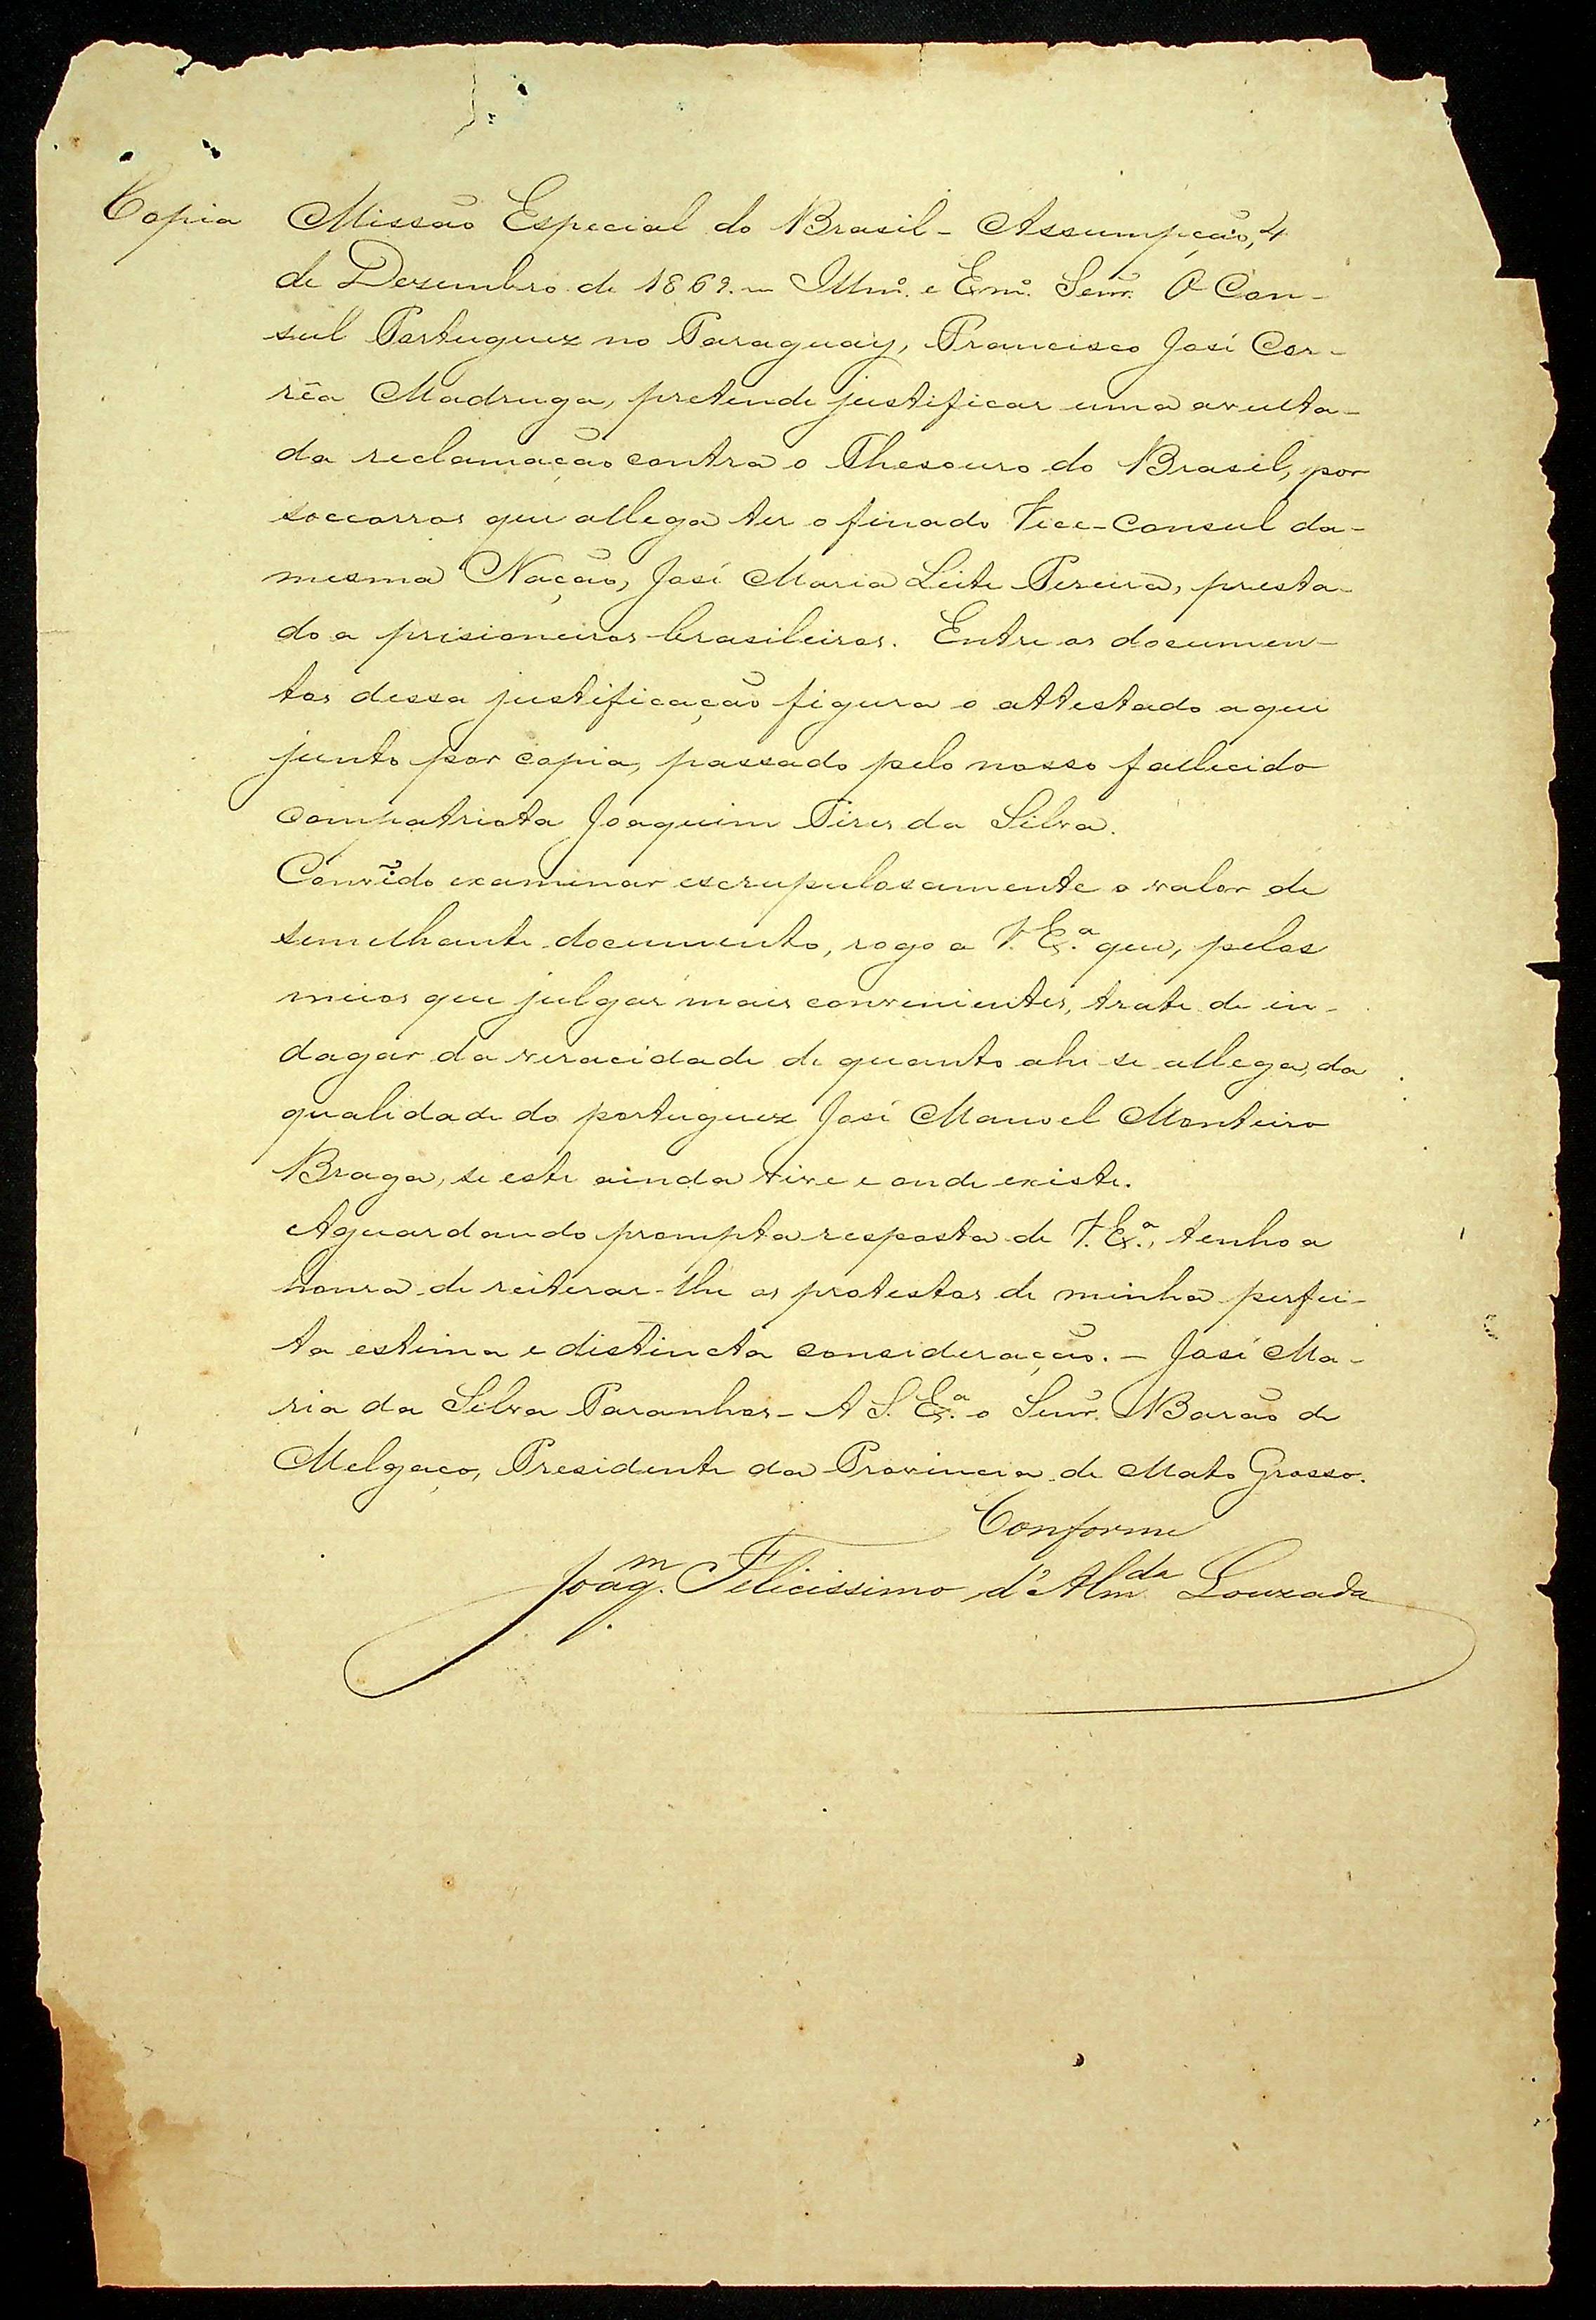 Copia Missão Especial do Brasil - Assumpção, 4
de Dezembro de 1869. - Illmº. e Exmº. Senr. O Con-
sul Portuguez no Paraguay, Francisco José Cor-
rêa Madruga, pretende justificar uma avulta-
da reclamação contra o Thesouro do Brasil, por
soccorros que allega ter o finado Vice-Consul da
mesma Nação, José Maria Leite Pereira, presta-
do a prisioneiros brasileiros. Entre os documen-
tos dessa justificação figura o attestado aqui
junto por copia, passado pelo nosso fallecido
compatriota Joaquim Pires da Silva.
Convido examinar escrupulosamente o valor de
semelhante documento, rogo a V. Ex.ª que, pelos
meios que julgar mais convenientes, trate de in-
dagar da veracidade de quanto ahi se allega, da
qualidade do portuguez José Manoel Monteiro
Braga, se este ainda vive e onde existe.
Aguardando prompta resposta de V. Ex.ª, tenho a
honra de reiterar-lhe os protestos de minha perfei-
ta estima e distincta consideração. - José Ma-
ria da Silva Paranhos - A S. Ex.ª o Senr. Barão de
Melgaço, Presidente da Provincia de Mato Grosso.
Conforme
Joaqm. Felicissimo d'Almda Louzada